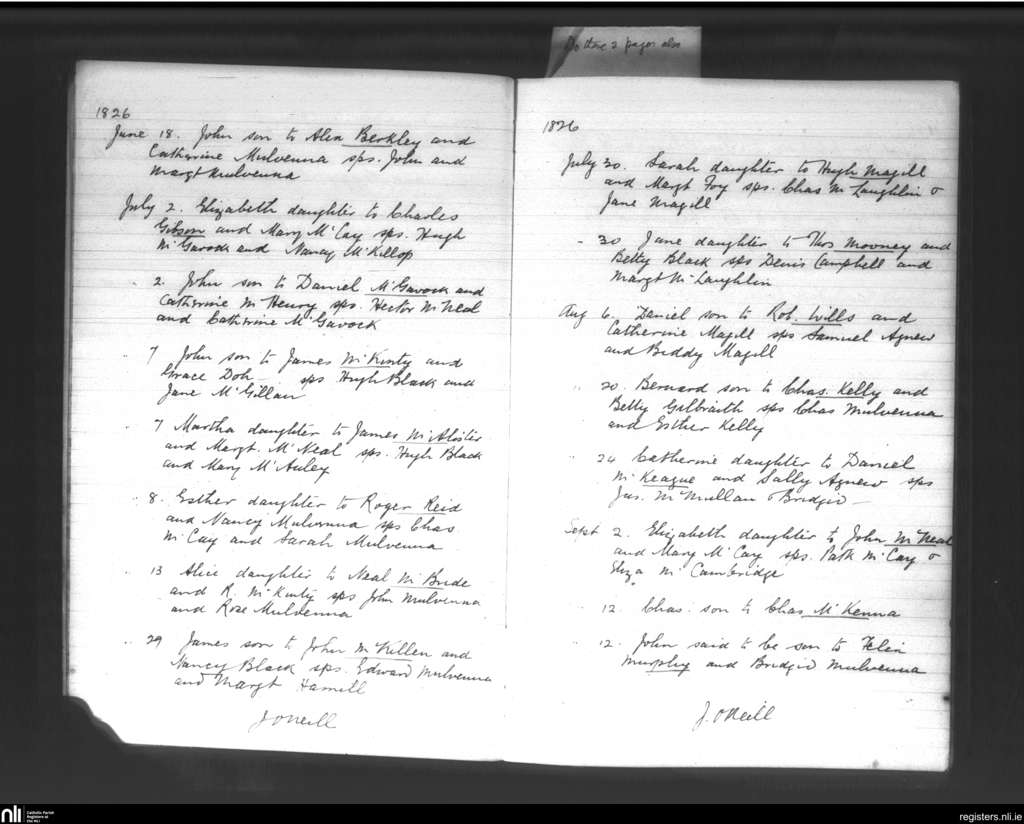 Do these 2 pages also
1826
June 18. John son to Alex Berkley and
Catherine Mulvenna sps. John and
Margt Mulvenna
July 2. Elizabeth daughter to Charles
Gibson and Mary McCay sps. Hugh
McGavock and Nancy McKillop
" 2. John son to Daniel McGavock and
Catherine McHenry sps. Hector McNeal
and Catherine McGavock
" 7 John son to James McKinty and
Grace Doh— sps Hugh Black and
Jane McGillan
" 7 Martha daughter to James McAlister
and Margt. McNeal sps. Hugh Black
and Mary McAuley
" 8. Esther daughter to Roger Reid
and Nancy Mulvenna sps Chas
McCay and Sarah Mulvenna
" 13 Alice daughter to Neal McBride
and R. McKinty sps John Mulvenna
and Rose Mulvenna
" 29 James son to John McKillen and
Nancy Black sps. Edward Mulvenna
and Margt Hamill
J O'Neill
1826
July 30. Sarah daughter to Hugh Magill
and Margt Foy sps. Chas McLaughlin &
Jane Magill
" 30 Jane daughter to Thos Mooney and
Betty Black sps Denis Campbell and
Margt McLaughlin
Aug 6. Daniel son to Rob. Wills and
Catherine Magill sps Samuel Agnew
and Biddy Magill
" 20. Bernard son to Chas. Kelly and
Betty Galbraith sps Chas Mulvenna
and Esther Kelly
" 24 Catherine daughter to Daniel
McKeague and Sally Agnew sps
Jas. McMullan & Bridgid —
Sept 2. Elizabeth daughter to John McNeal
and Mary McCay sps. Patk McCay &
Eliza McCambridge
" 12. Chas. son to Chas McKenna
" 12. John said to be son to Felix
Murphy and Bridgid Mulvenna
J. O'Neill
nli
Catholic Parish
Registers at
the NLI
registers.nli.ie